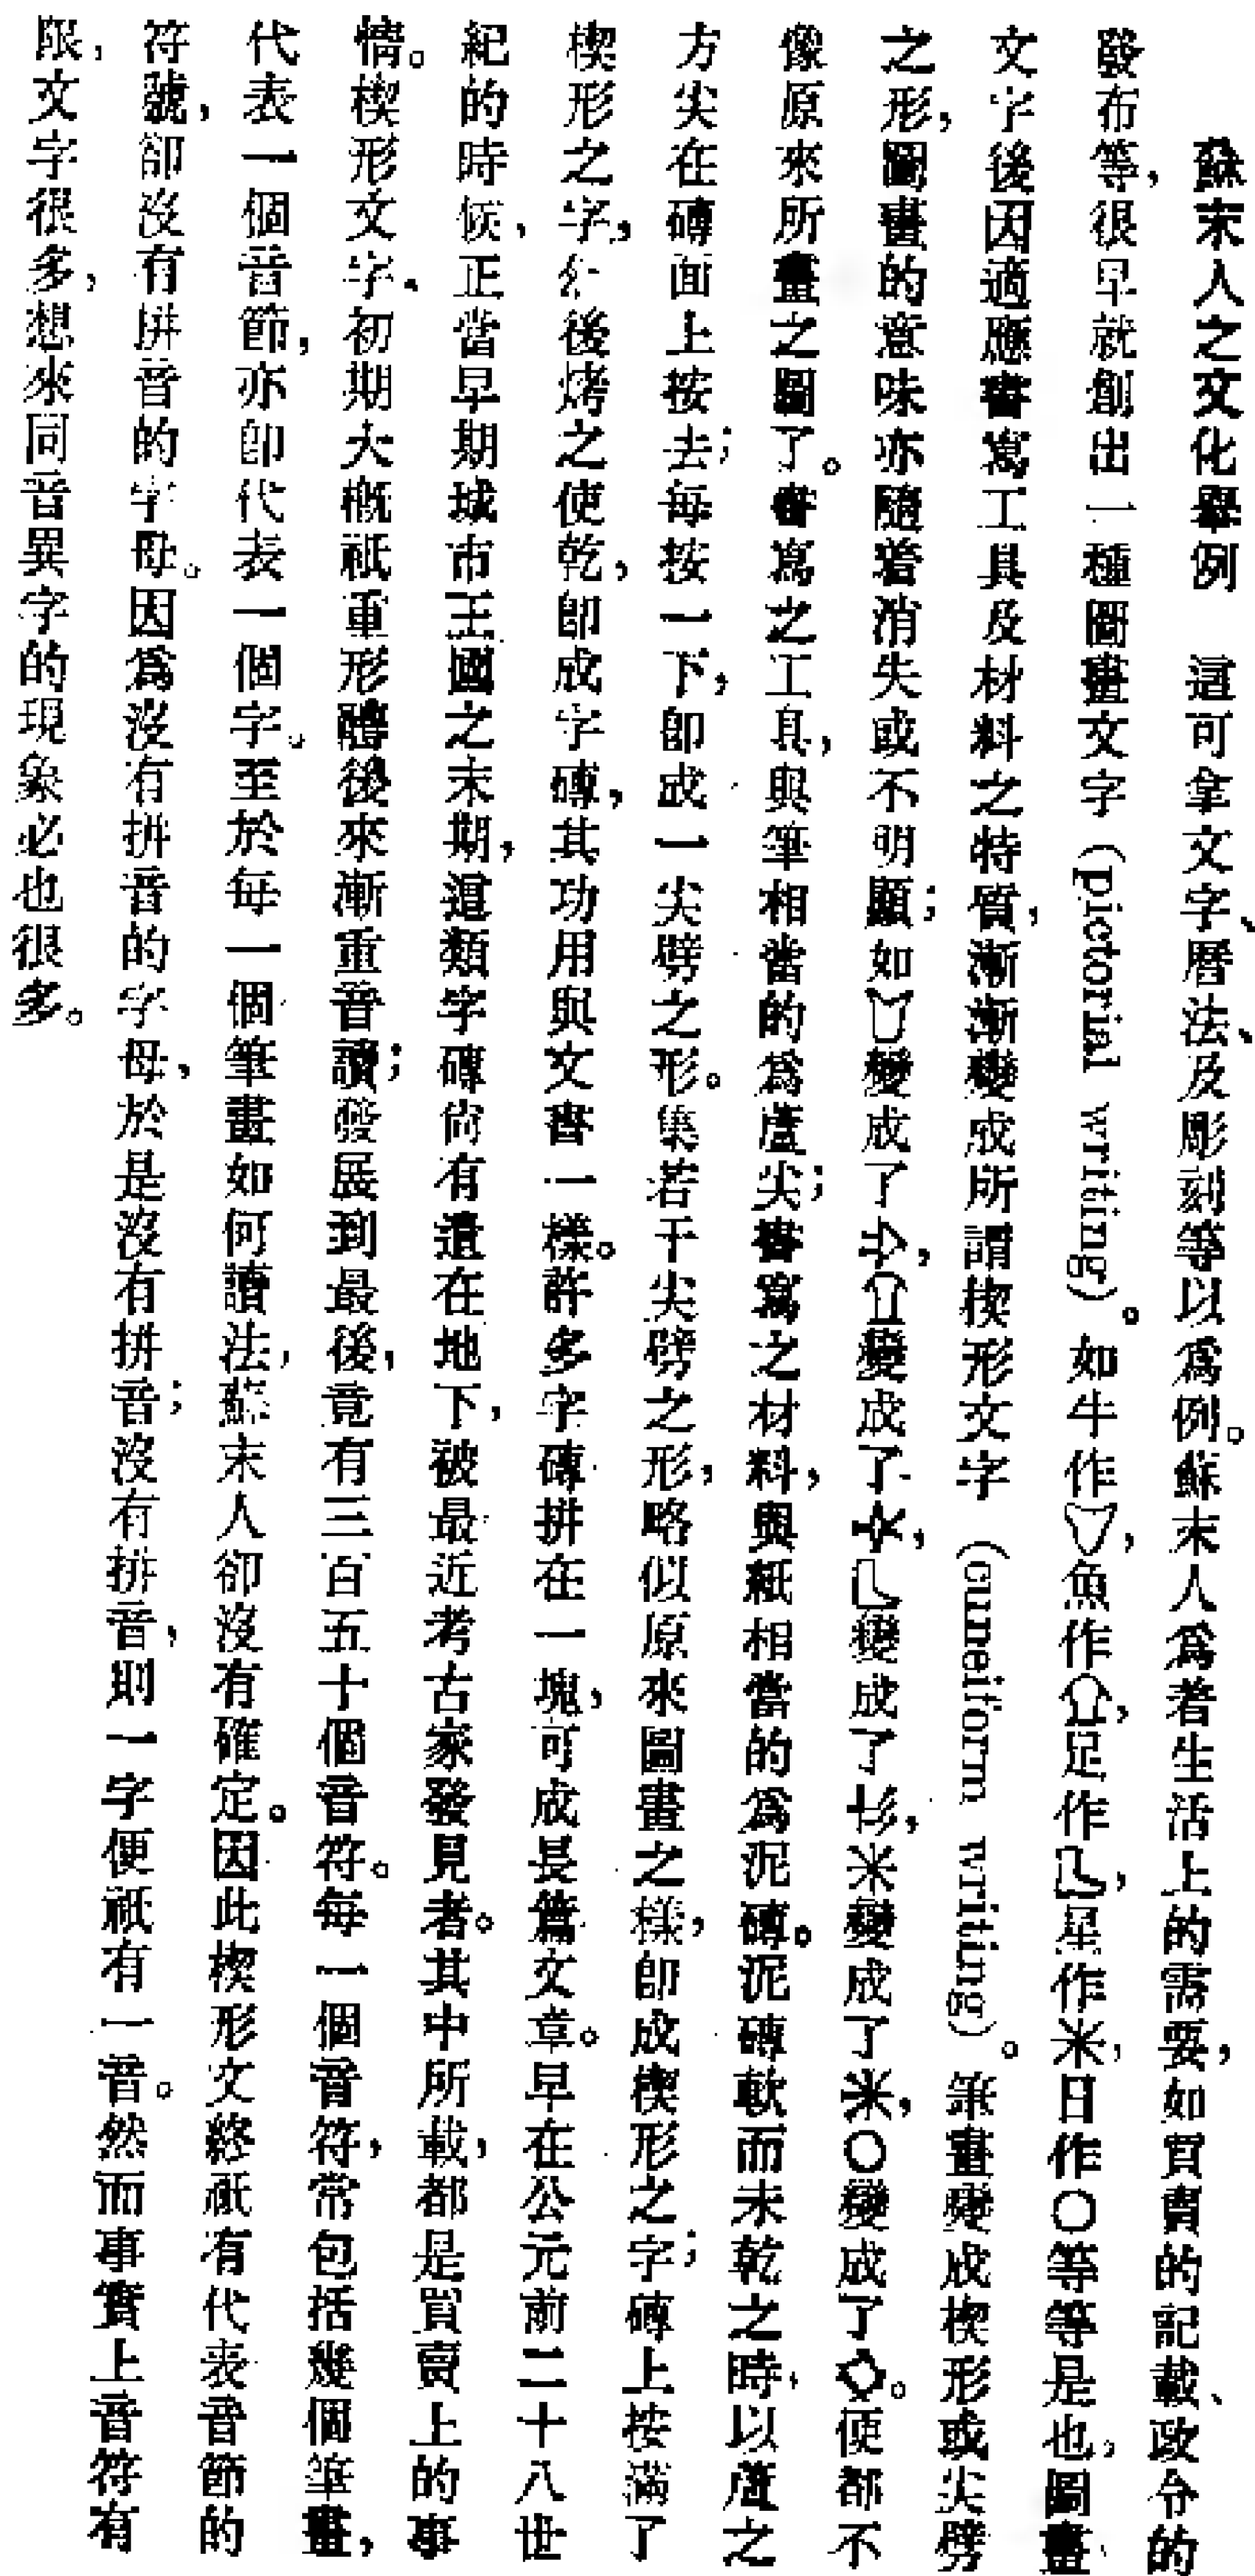 蘇末人之文化舉例　這可拿文字、曆法、及彫刻等以爲例。蘇末人爲着生活上的需要，如買賣的記載、政令的
發布等，很早就創出一種圖畫文字（pictorial writing）。如牛作，魚作，足作，星作，日作〇等等是也。圖畫
文字後因適應書寫工具及材料之特質，漸漸變成所謂楔形文字（cuneiform writing）。筆畫變成楔形或尖劈
之形，圖畫的意味亦隨着消失或不明顯；如變成了，變成了，變成了，變成了，〇變成了。便都不
像原來所畫之圖了。書寫之工具，與筆相當的爲蘆尖；書寫之材料，與紙相當的爲泥磚。泥磚軟而未乾之時，以蘆之
方尖在磚面上按去；每按一下，卽成一尖劈之形。集若干尖劈之形，略似原來圖畫之樣，卽成楔形之字；磚上按滿了
楔形之字，然後烤之使乾，卽成字磚，其功用與文書一樣。許多字磚拼在一塊，可成長篇文章。早在公元前二十八世
紀的時候，正當早期城市王國之末期，這類字磚尙有遺在地下，被最近考古家發見者。其中所載，都是買賣上的事
情。楔形文字，初期大概祇重形體，後來漸重音讀；發展到最後，竟有三百五十個音符。每一個音符，常包括幾個筆畫，
代表一個音節，亦卽代表一個字。至於每一個筆畫如何讀法，蘇末人卻沒有確定。因此楔形文終祇有代表音節的
符號，卻沒有拼音的字母。因爲沒有拼音的字母，於是沒有拼音；沒有拼音，則一字便祇有一音。然而事實上音符有
限，文字很多，想來同音異字的現象必也很多。